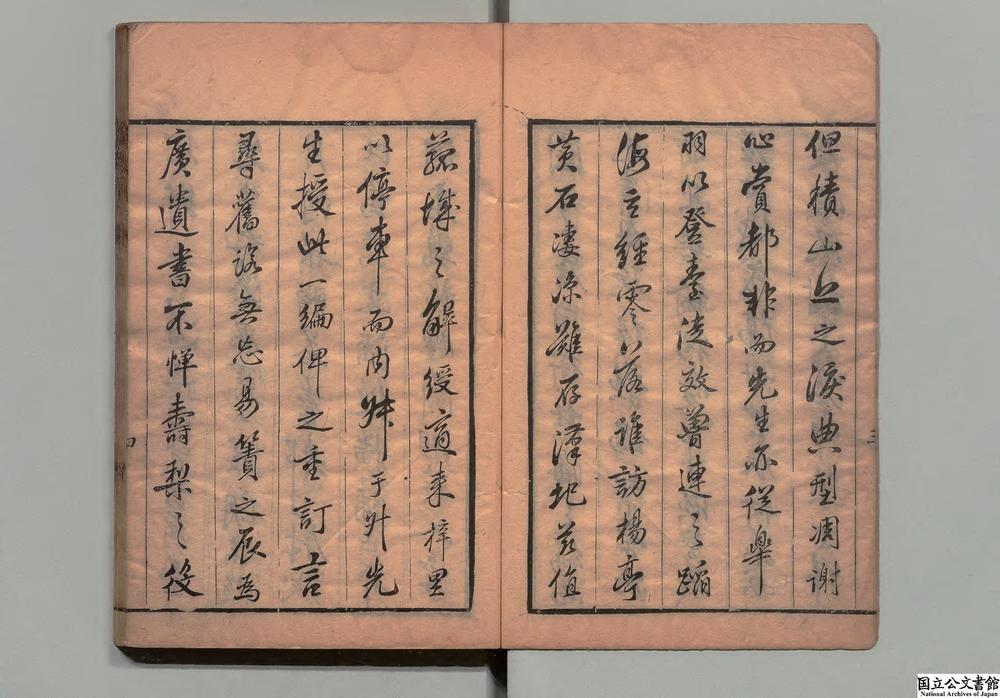 但積山丘之淚典型凋謝
心賞都非而先生亦從皋
羽以登臺徒效魯連之蹈
海玄經零落誰訪楊亭
黃石淒涼難存漢圯茲值
三
菰城之解綬適來梓里
以停車而內于先
生授此一編俾之重訂言
尋舊諾無忘易簀之辰爲
廣遺書不憚壽梨之役
四
国立公文書館
National Archives of Japan